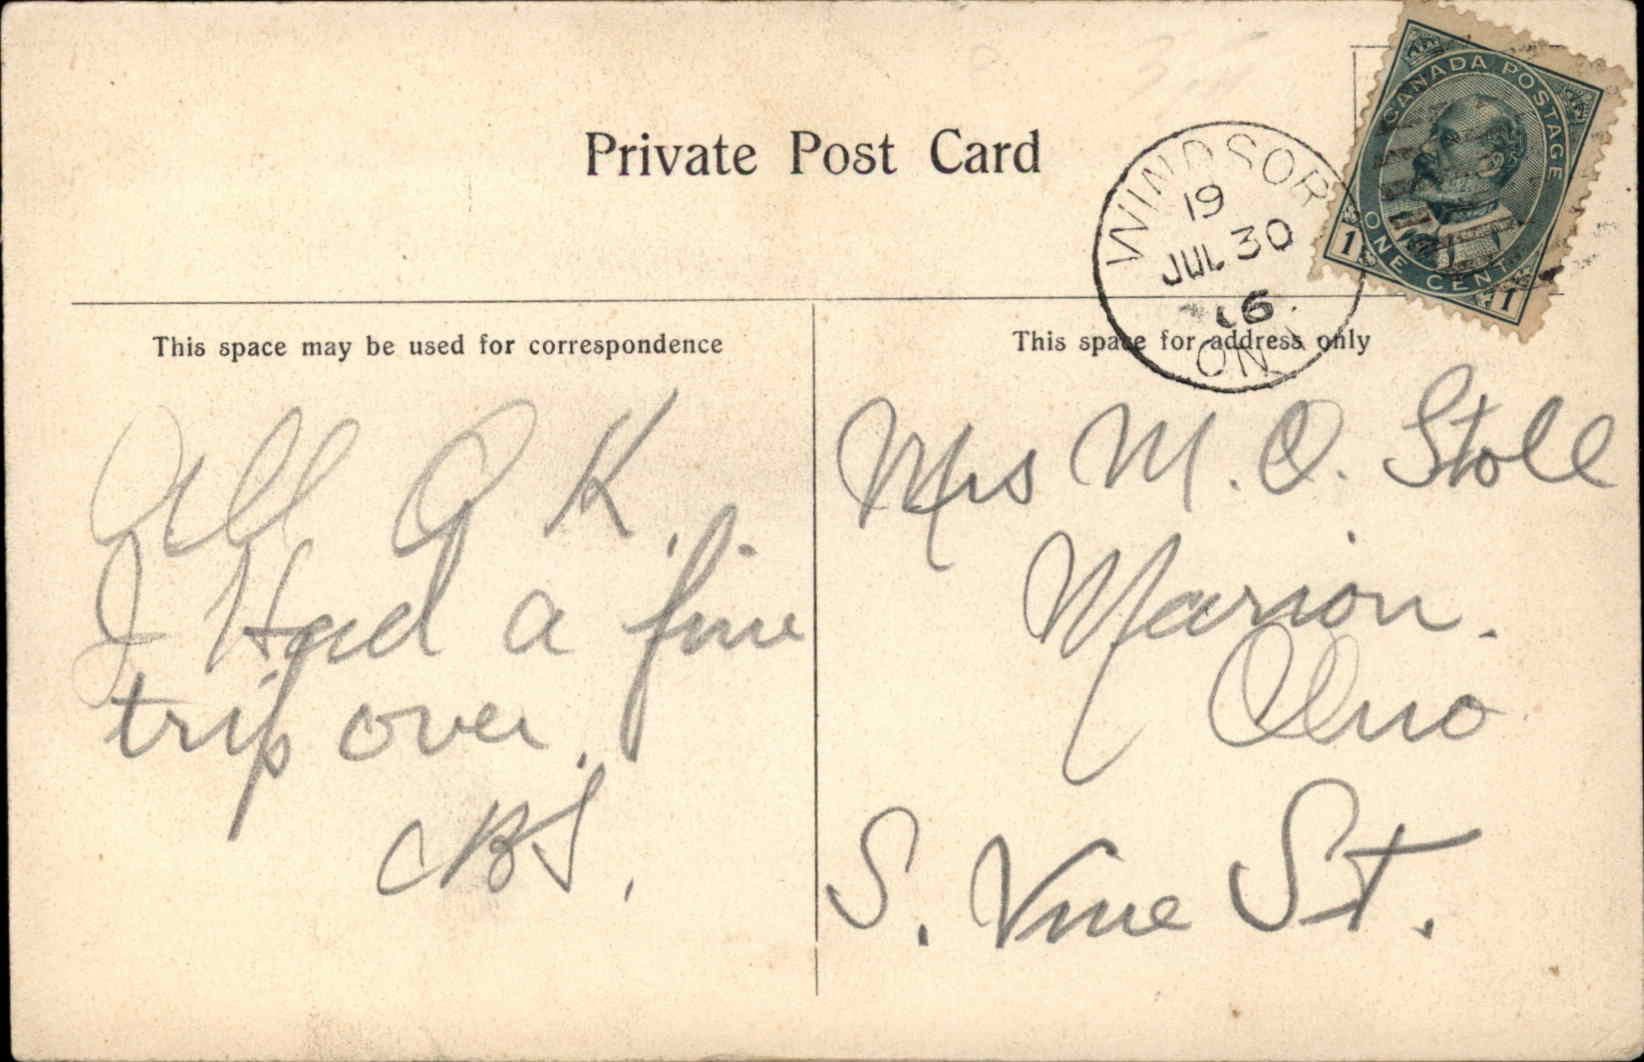 Private Post Card
CANADA POSTAGE
ONE CENT
1
1
WINDSOR
19
JUL 30
06
ONT
This space may be used for correspondence
All O K.
I Had a fine
trip over.
CBS.
This space for address only
Mrs M. O. Stoll
Marion.
Ohio
S. Vine St.